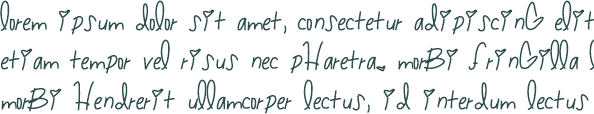 lorem ipsum dolor sit amet, consectetur adipiscinG elit
etiam tempor vel risus nec pHaretra. morBi frinGilla l
morBi Hendrerit ullamcorper lectus, id interdum lectus